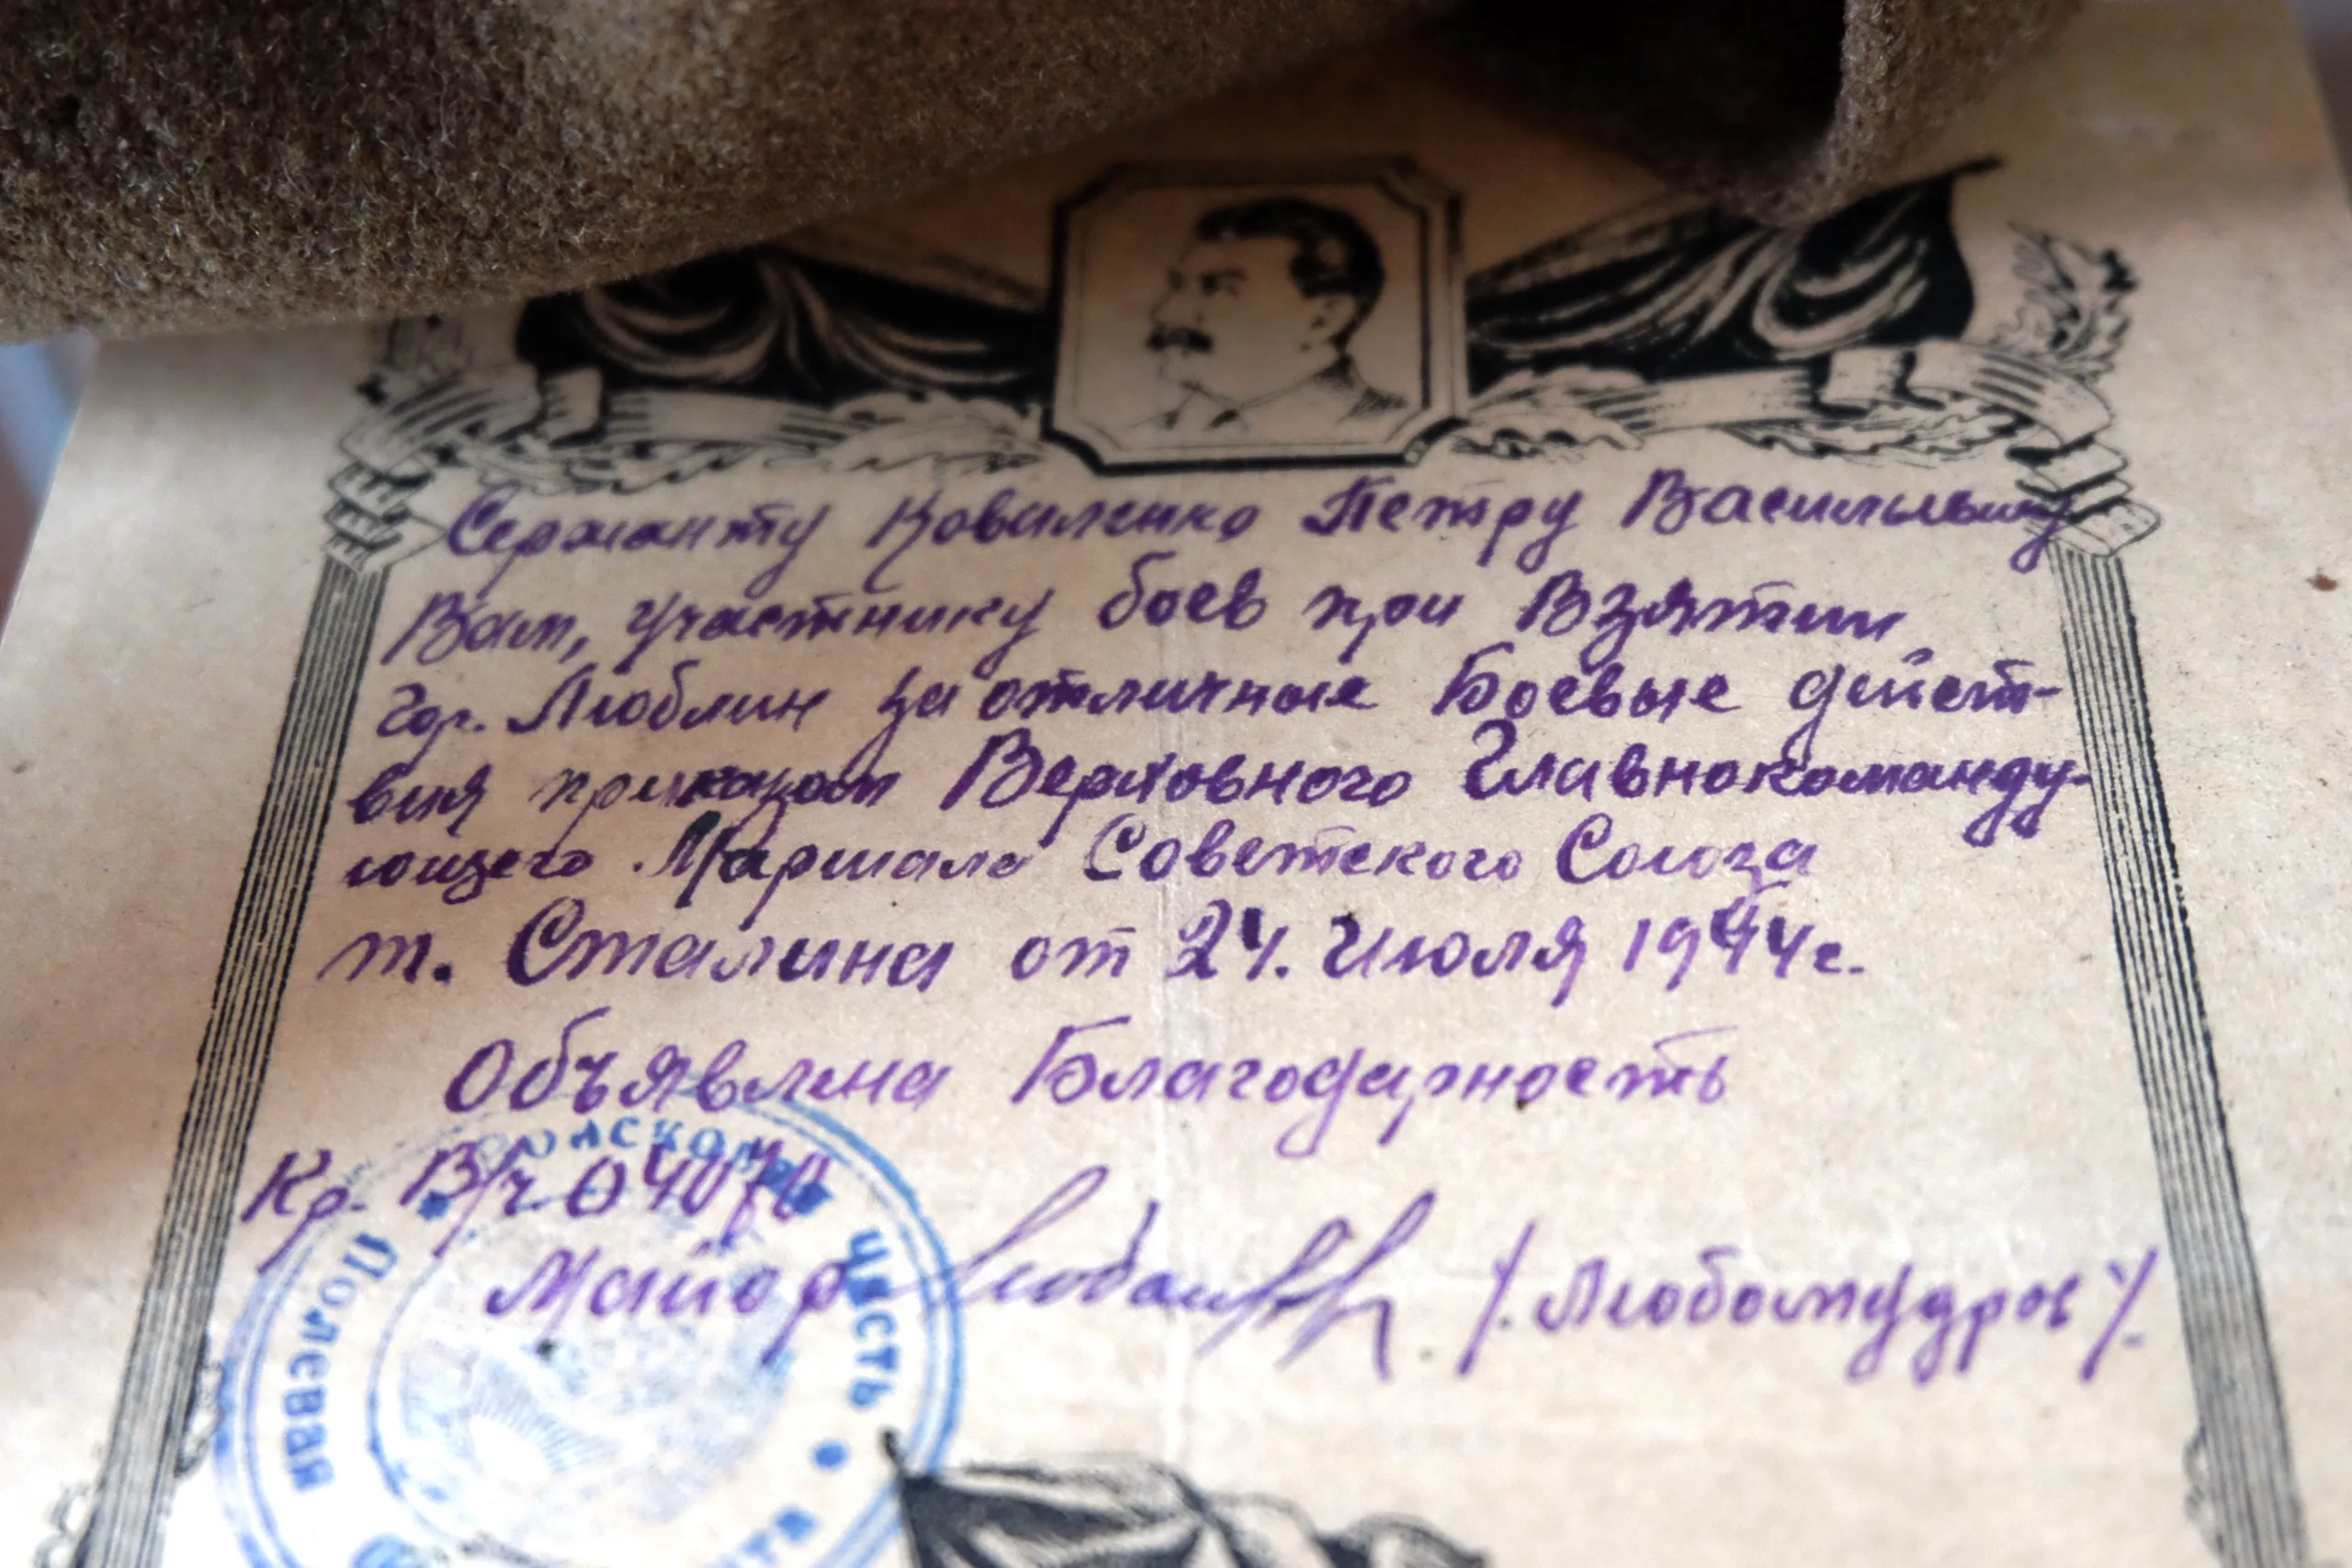 Сержанту Коваленко Петру Васильевичу
Вам, участнику боев при Взятии
гор. Люблин за отличные Боевые дейст-
вия приказом Верховного Главнокоманду-
ющего Маршала Советского Союза
т. Сталина от 24. Июля 1944 г.
Объявлена Благодарность
Кр. В/ч 04070
Майор /. Любомудров /.
Полевая часть